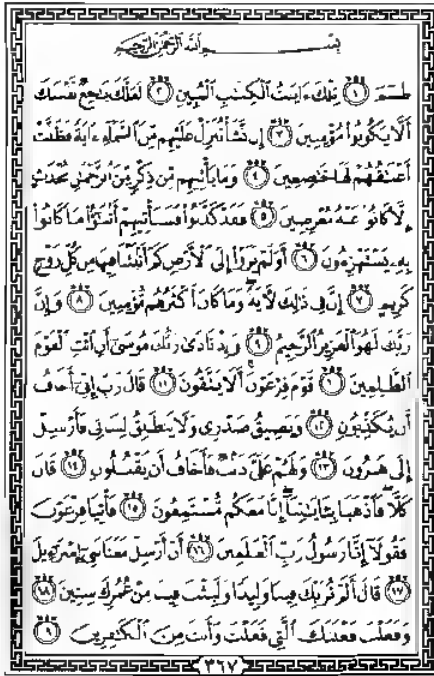 بسم الله الرحمن الرحيم
طسم ١ تلك ءايت الكتب المبين ٢ لعلك بخع نفسك
ألا يكونوا مؤمنين ٣ إن نشأ ننزل عليهم من السماء ءاية فظلت
أعنقهم لها خضعين ٤ وما يأتيهم من ذكر من الرحمن محدث
إلا كانوا عنه معرضين ٥ فقد كذبوا فسيأتيهم أنبؤا ما كانوا
به يستهزءون ٦ أولم يروا إلى الأرض كم أنبتنا فيها من كل زوج
كريم ٧ إن في ذلك لأية وما كان أكثرهم مؤمنين ٨ وإن
ربك لهو العزيز الرحيم ٩ وإذ نادى ربك موسى أن ائت القوم
الظلمين ١٠ قوم فرعون ألا يتقون ١١ قال رب إني أخاف
أن يكذبون ١٢ ويضيق صدري ولا ينطلق لساني فأرسل
إلى هرون ١٣ ولهم علي ذنب فأخاف أن يقتلون ١٤ قال
كلا فاذهبا بءايتنا إنا معكم مستمعون ١٥ فأتيا فرعون
فقولا إنا رسول رب العلمين ١٦ أن أرسل معنا بني إسرءيل
١٧ قال ألم نربك فينا وليدا ولبثت فينا من عمرك سنين ١٨
وفعلت فعلتك التي فعلت وأنت من الكفرين ١٩
٣٦٧